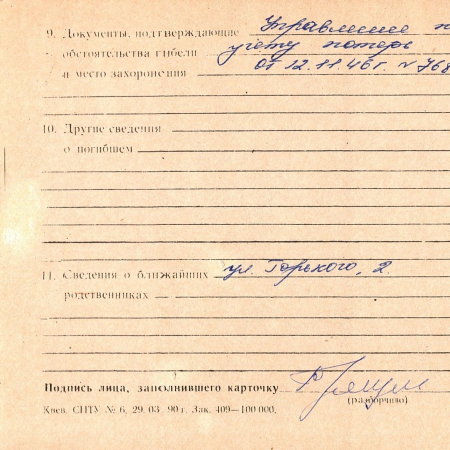 9. Документы, подтверждающие Управление п
обстоятельства гибели учету потерь
и место захоронения от 12.11.46г. №768
10. Другие сведения
о погибшем
11. Сведения о ближайших ул. Горького, 2
родственниках
Подпись лица, заполнившего карточку
(разборчиво)
Киев. СПТУ № 6, 29. 03. 90 г. Зак. 409—100 000.